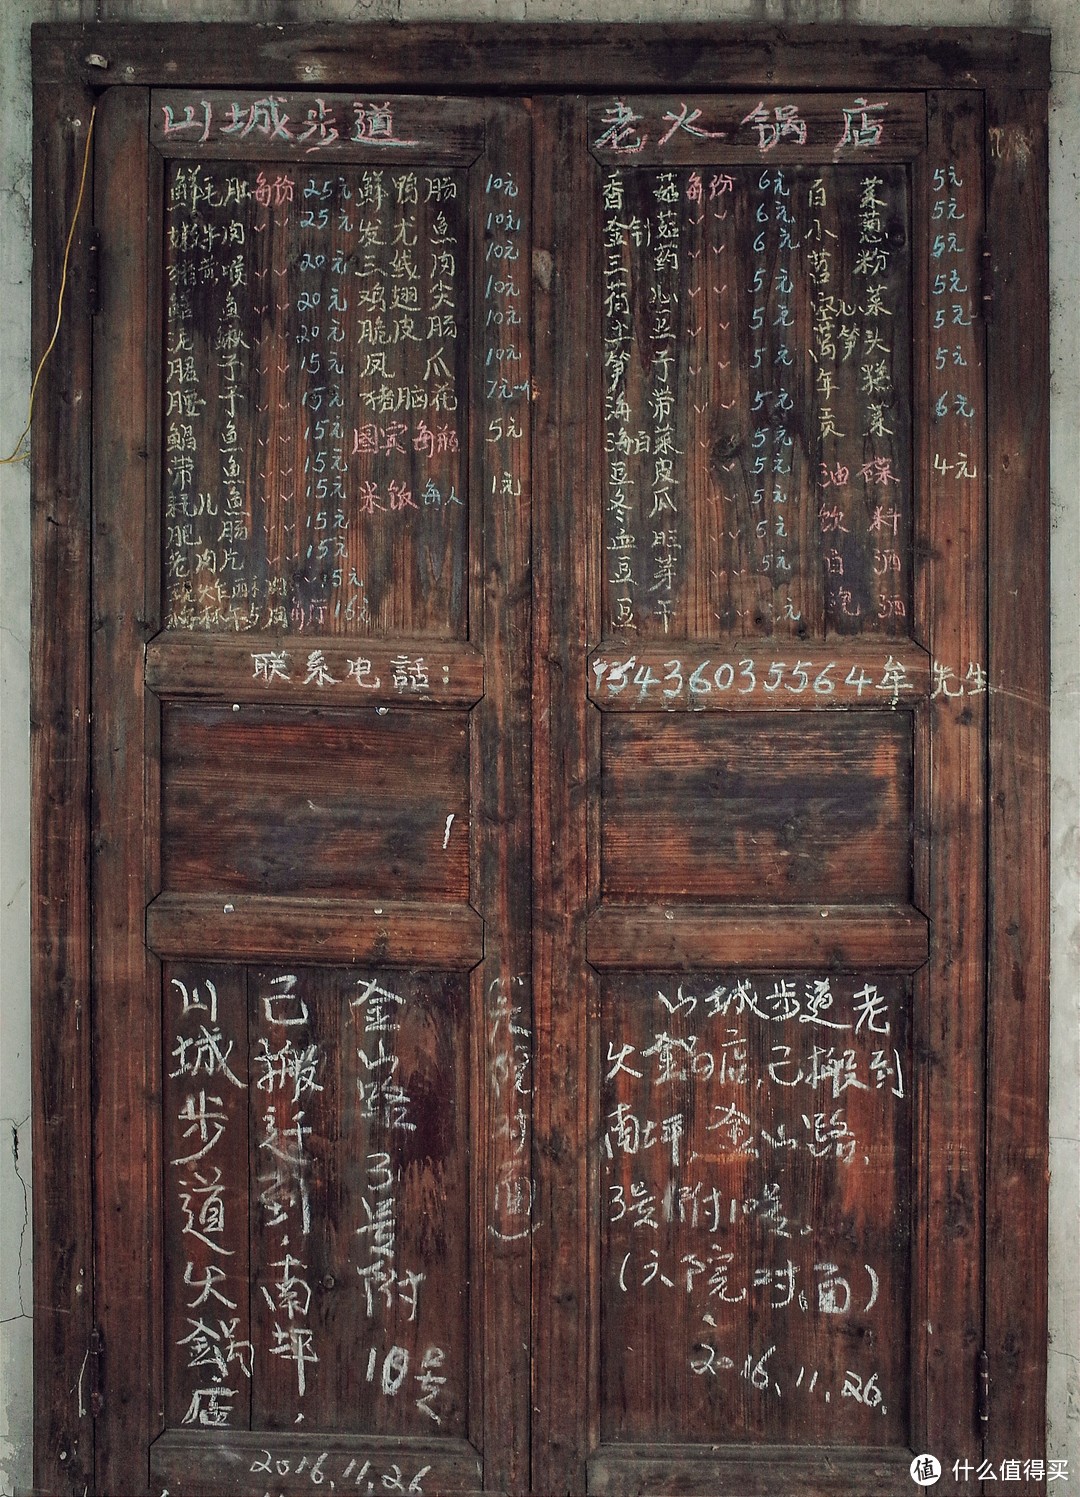 山城步道 老火锅店
鲜毛肚 每份 25元
嫩牛肉 〃 25元
猪黄喉 〃 20元
鳝鱼 〃 20元
泥鳅 〃 20元
郡子 15元
腰子 15元
鲳鱼 15元
带鱼 15元
耗儿鱼 15元
肥肠 15元
老肉片 15元
15元
16元
鲜鸭肠 10元
发尤鱼 10元
三线肉 10元
鸡翅尖 10元
脆皮肠 10元
凤爪 10元
猪脑花 7元一个
国宾每瓶 5元
米饭每人 1元
香菇 每份 6元
金针菇 〃 6元
三 药 6元
5元
土 豆 5元
笋子 5元
海带 5元
海白菜 5元
豆皮 5元
冬瓜 5元
血旺 5元
豆芽 5元
豆干 元
白菜 5元
小葱 5元
苕粉 5元
空心菜 5元
莴笋头 5元
年糕 5元
贡菜 6元
油碟 4元
饮料
白酒
泡酒
联系电话：
15436035564牟先生
山城步道火鍋店
己搬迁到，南坪，
金山路3号附
10号
(六院对面)
2016.11.26
山城步道老
火鍋店，己搬到
南坪，金山路，
3号附10号。
(六院对面)
2016.11.26.
值 什么值得买